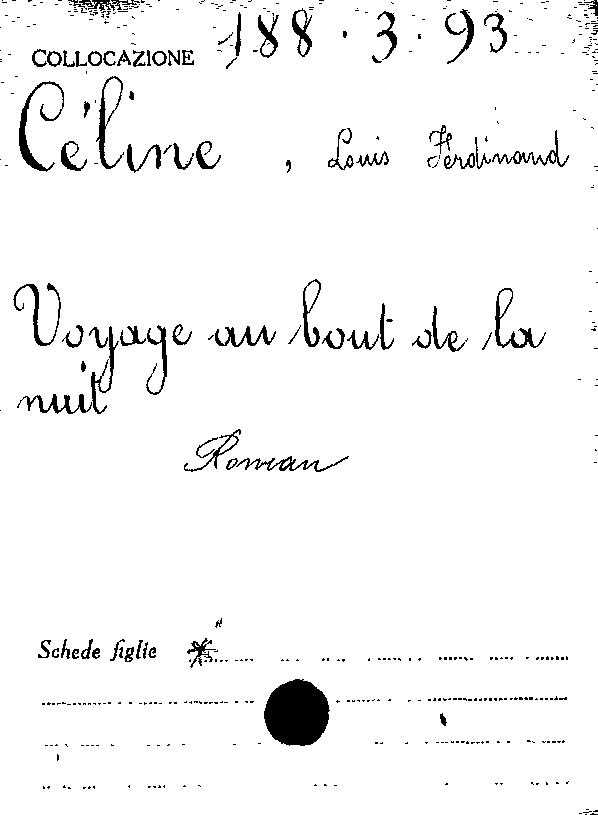 COLLOCAZIONE 188.3.93
Céline, Louis Ferdinand
Voyage au bout de la
nuit
Roman
Schede figlie *